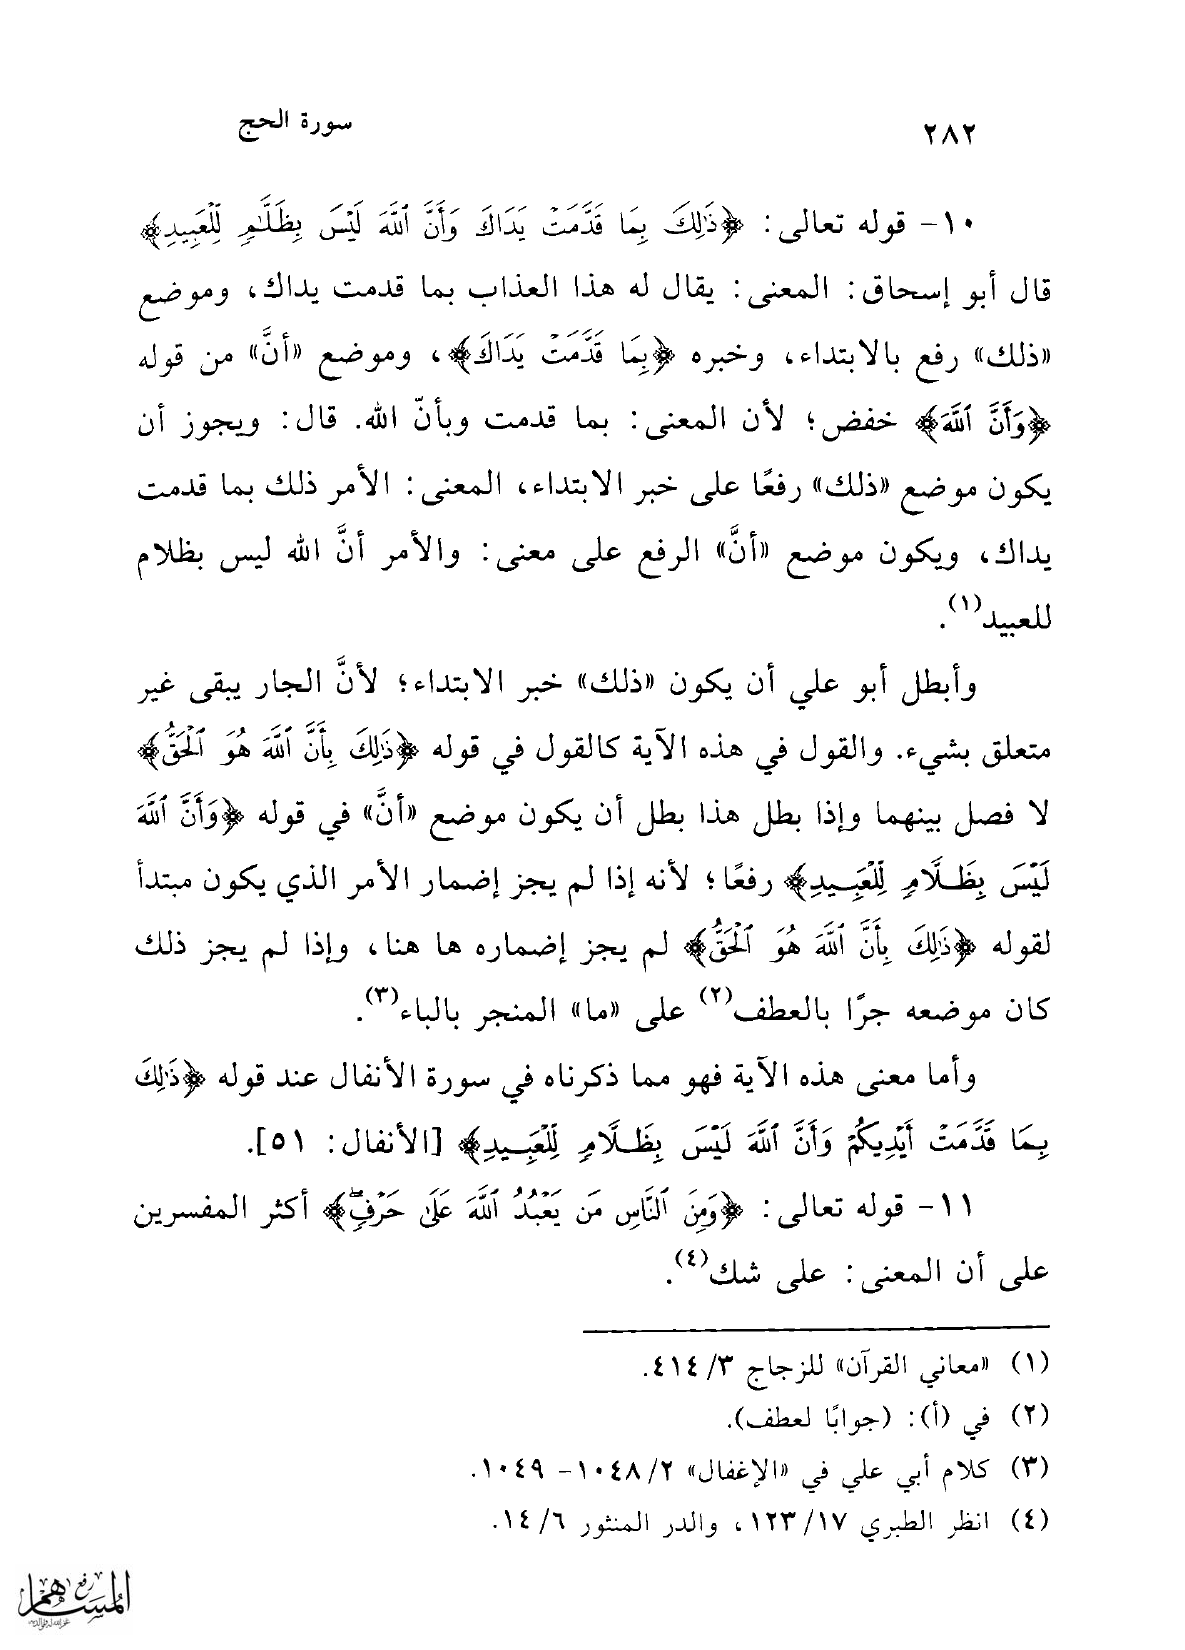 ٢٨٢ سورة الحج
١٠- قوله تعالى: ﴿ذَٰلِكَ بِمَا قَدَّمَتْ يَدَاكَ وَأَنَّ ٱللَّهَ لَيْسَ بِظَلَّٰمٍ لِّلْعَبِيدِ﴾
قال أبو إسحاق: المعنى: يقال له هذا العذاب بما قدمت يداك، وموضع
«ذلك» رفع بالابتداء، وخبره ﴿بِمَا قَدَّمَتْ يَدَاكَ﴾، وموضع «أنَّ» من قوله
﴿وَأَنَّ ٱللَّهَ﴾ خفض؛ لأن المعنى: بما قدمت وبأنّ الله. قال: ويجوز أن
يكون موضع «ذلك» رفعًا على خبر الابتداء، المعنى: الأمر ذلك بما قدمت
يداك، ويكون موضع «أنَّ» الرفع على معنى: والأمر أنَّ الله ليس بظلام
للعبيد(١).
وأبطل أبو علي أن يكون «ذلك» خبر الابتداء؛ لأنَّ الجار يبقى غير
متعلق بشيء. والقول في هذه الآية كالقول في قوله ﴿ذَٰلِكَ بِأَنَّ ٱللَّهَ هُوَ ٱلْحَقُّ﴾
لا فصل بينهما وإذا بطل هذا بطل أن يكون موضع «أنَّ» في قوله ﴿وَأَنَّ ٱللَّهَ
لَيْسَ بِظَلَّامٍ لِّلْعَبِيدِ﴾ رفعًا؛ لأنه إذا لم يجز إضمار الأمر الذي يكون مبتدأ
لقوله ﴿ذَٰلِكَ بِأَنَّ ٱللَّهَ هُوَ ٱلْحَقُّ﴾ لم يجز إضماره ها هنا، وإذا لم يجز ذلك
كان موضعه جرًا بالعطف(٢) على «ما» المنجر بالباء(٣).
وأما معنى هذه الآية فهو مما ذكرناه في سورة الأنفال عند قوله ﴿ذَٰلِكَ
بِمَا قَدَّمَتْ أَيْدِيكُمْ وَأَنَّ ٱللَّهَ لَيْسَ بِظَلَّامٍ لِّلْعَبِيدِ﴾ [الأنفال: ٥١].
١١- قوله تعالى: ﴿وَمِنَ ٱلنَّاسِ مَن يَعْبُدُ ٱللَّهَ عَلَىٰ حَرْفٍۖ﴾ أكثر المفسرين
على أن المعنى: على شك(٤).
(١) «معاني القرآن» للزجاج ٣/ ٤١٤.
(٢) في (أ): (جوابًا لعطف).
(٣) كلام أبي علي في «الإغفال» ٢/ ١٠٤٨- ١٠٤٩.
(٤) انظر الطبري ١٧/ ١٢٣، والدر المنثور ٦/ ١٤.